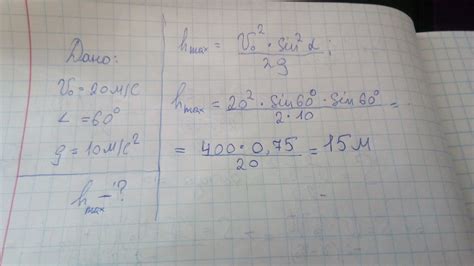 Дано:
V₀ = 20 м/с
∠ = 60°
g = 10 м/с²
hmax – ?
hmax = V₀² · sin² α / 2g ;
hmax = 20² · sin 60° · sin 60° / 2 · 10 =
= 400 · 0,75 / 20 = 15 м